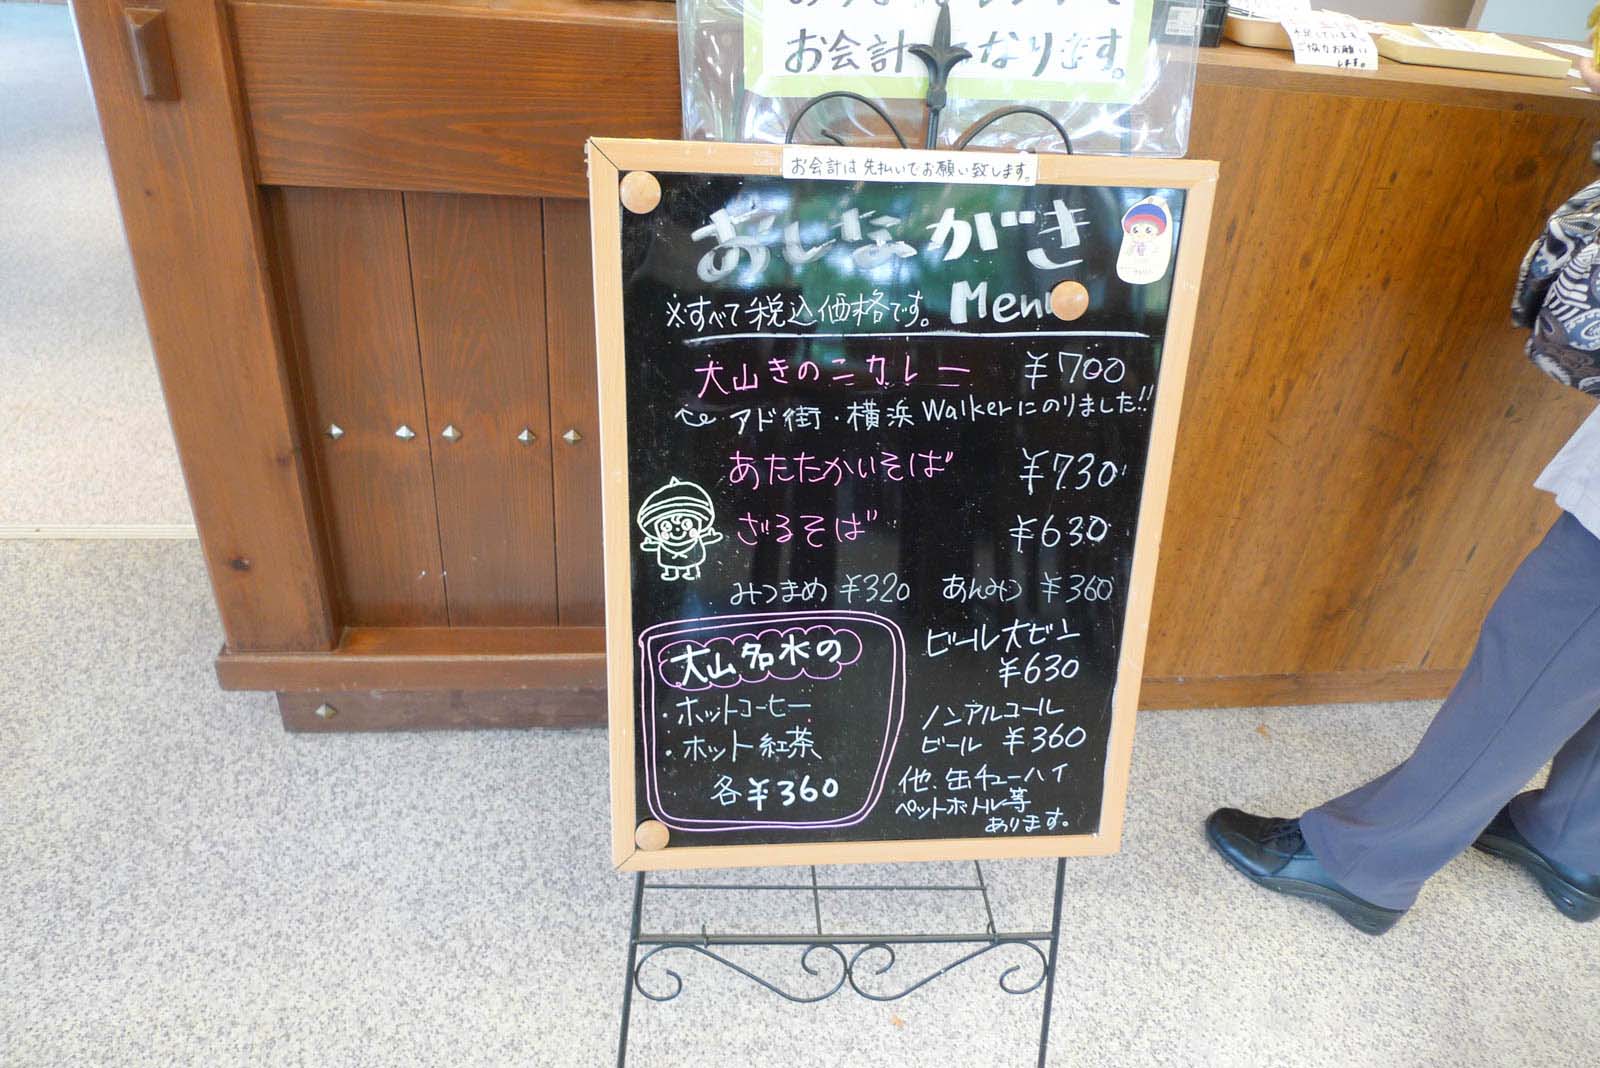 お会計になります。
ご協力お願い
します。
お会計は先払いでお願い致します。
おしながき
※すべて税込価格です。 Menu
大山きのこカレー ¥700
アド街・横浜Walkerにのりました!!
あたたかいそば ¥730
ざるそば ¥630
みつまめ ¥320 あんみつ ¥360
大山名水の
・ホットコーヒー
・ホット紅茶
各¥360
ビール大ビン
¥630
ノンアルコール
ビール ¥360
他、缶チューハイ
ペットボトル等
あります。